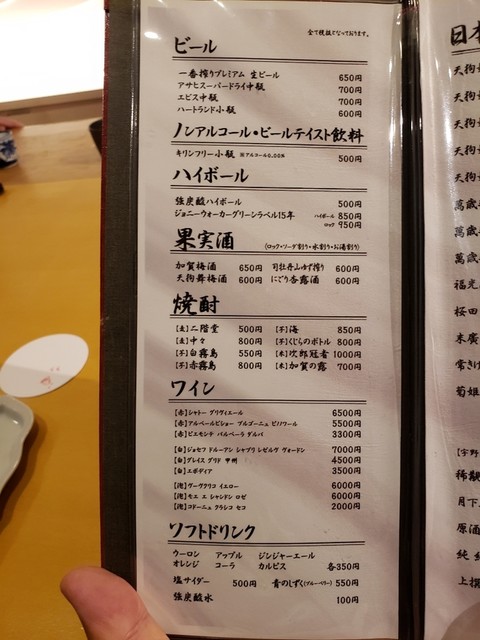 全て税抜となっております。
ビール
一番搾りプレミアム 生ビール 650円
アサヒスーパードライ中瓶 700円
エビス中瓶 700円
ハートランド小瓶 600円
ノンアルコール・ビールテイスト飲料
キリンフリー小瓶 ※アルコール0.00% 500円
ハイボール
強炭酸ハイボール 500円
ジョニーウォーカーグリーンラベル15年 ハイボール 850円
ロック 950円
果実酒 (ロック・ソーダ割り・水割り・お湯割り)
加賀梅酒 650円 司牡丹山ゆず搾り 600円
天狗舞梅酒 600円 にごり杏露酒 600円
焼酎
【麦】二階堂 500円 【芋】海 850円
【麦】中々 800円 【芋】くじらのボトル 800円
【芋】白霧島 550円 【米】次郎冠者 1000円
【芋】赤霧島 800円 【米】加賀の露 700円
ワイン
【赤】シャトー グリヴィエール 6500円
【赤】アルベールビショー ブルゴーニュ ピノノワール 5500円
【赤】ピエモンテ バルベーラ ダルバ 3300円
【白】ジョセフ ドルーアン シャブリ レゼルヴ ヴォードン 7000円
【白】グレイス グリド 甲州 4500円
【白】エボディア 3500円
【泡】ヴーヴクリコ イエロー 6000円
【泡】モエ エ シャンドン ロゼ 6000円
【泡】コドーニュ クラシコ セコ 2000円
ソフトドリンク
ウーロン アップル ジンジャーエール
オレンジ コーラ カルピス 各350円
塩サイダー 500円 青のしずく(ブルーベリー) 550円
強炭酸水 100円
日本
天狗
天狗
天狗
天狗
天狗
萬歳
萬歳
萬歳
福光
桜田
末廣
常き
菊姫
【宇野
稀
月下
原酒
純
上撰